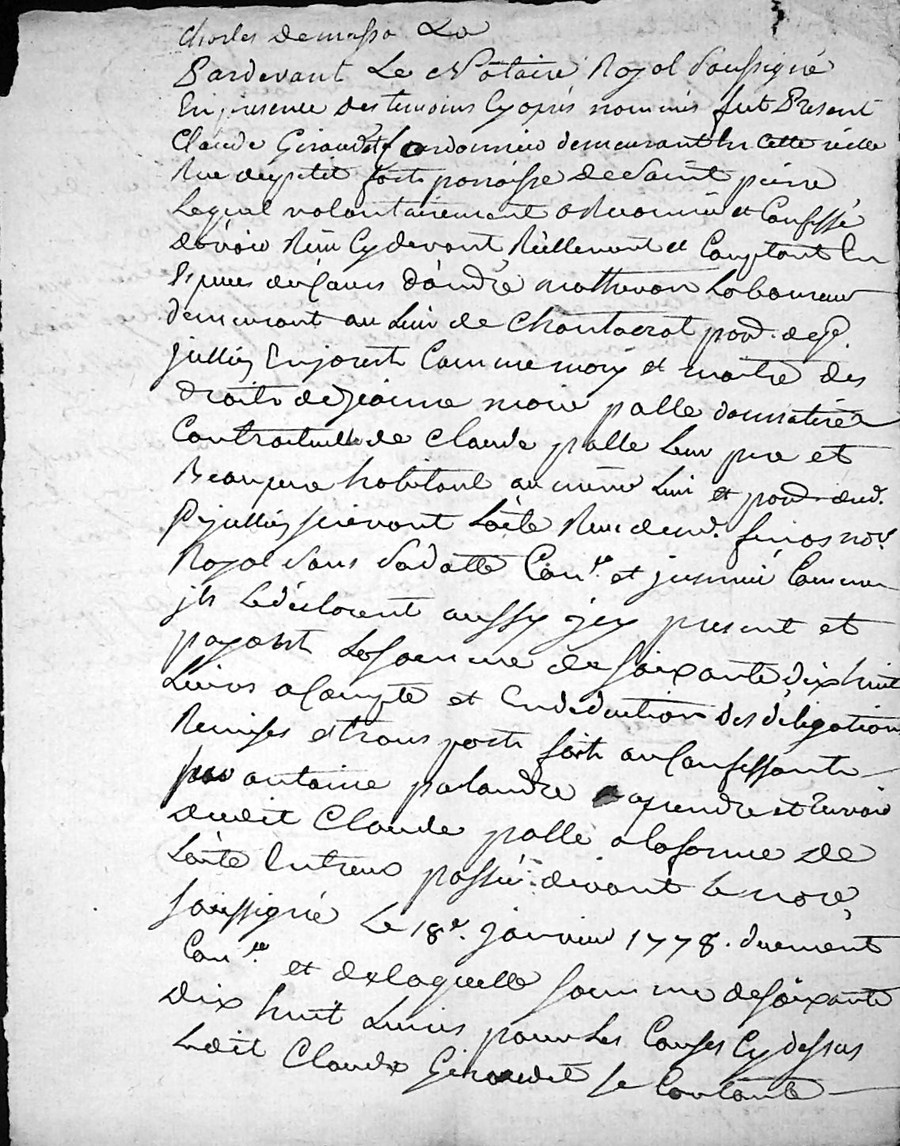 Charles Demasso
Pardevant Le Notaire Royal Soussigné
En presence des temoins Cyaprés nommés fut Present
Claude Giraudet Cordonnier demeurant En Cette ville
Rue du petit fort parroisse de Saint pierre
Lequel volontairement a Reconnu et Confessé
davoir Reçu Cydevant Réellement et Comptant En
Espuces de Cours d'andré Mathevon Laboureur
demeurant au Lieu de Chantacrot parr. de St.
Jullien En Jarest Comme mary et maitre des
droits de Jeanne marie palle donnatire
Contractuelle de Claude palle Leur pere et
Beaupere habitant au même Lieu et parr. dud.
St jullien suivant L'acte Reçu de md. finas nore.
Royal Sous Sa datte Con.lé et Comme
jls Le déclarent aussy jcy present et
payant La somme de soixante dix huit
Livres a Compte et En deduction des déligations
Remises et transports faits au Confessant
par antoine palandre a prendre et Ravoir
dudit Claude palle a la forme de
L'acte Entreux passé devant le nore
soussigné Le 18e. janvier 1778. duement
Con.lé et de laquelle somme de soixante
Dix huit Livres pour Les Causes Cy dessus
Ledit Claude Giraudet se Contante